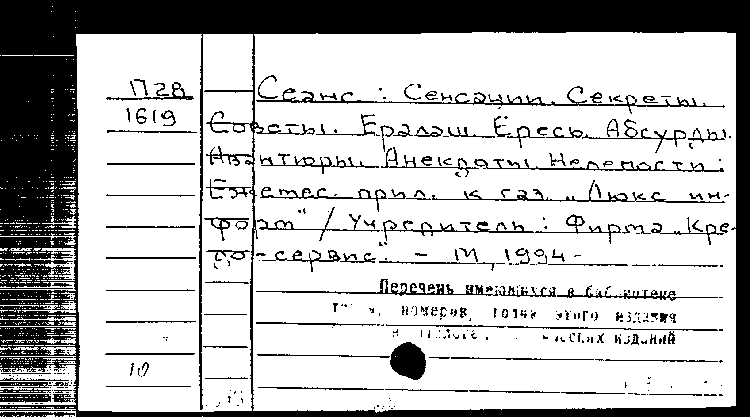 П28
1619
Сеанс : Сенсации. Секреты.
Советы. Ералаш. Ересь. Абсурды.
Авантюры. Анекдоты. Нелепости :
Ежемес. прил. к газ. „Люкс ин-
форм" / Учредитель : Фирма „Кре-
до-сервис". - М, 1994 -
Перечень имеющихся в библиотеке
номеров, годов этого издания
изданий
10